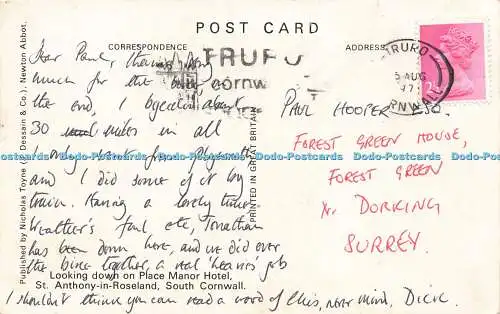 POST CARD
CORRESPONDENCE
ADDRESS
TRURO
cornw
TRURO
5 AUG
RNWALL
Published by Nicholas Toyne (C. Dessain & Co.), Newton Abbot.
PRINTED IN GREAT BRITAIN
Dear Paul, thanks very
much for the bike, in
the end, I bicycled about
30 miles in all
I only went from Plymouth
and I did some of it by
train. Having a lovely time.
Weather's foul, etc, Jonathan
has been down here, and we did over
the bike together, a real 'heavies' job
I shouldn't think you can read a word of this, never mind, Dick.
PAUL HOOPER ESQ.
FOREST GREEN HOUSE,
FOREST GREEN
Nr DORKING
SURREY.
Looking down on Place Manor Hotel,
St. Anthony-in-Roseland, South Cornwall.
Dodo-Postcards Dodo-Postcards Dodo-Postcards Dodo-Postcards Dodo-Postcards